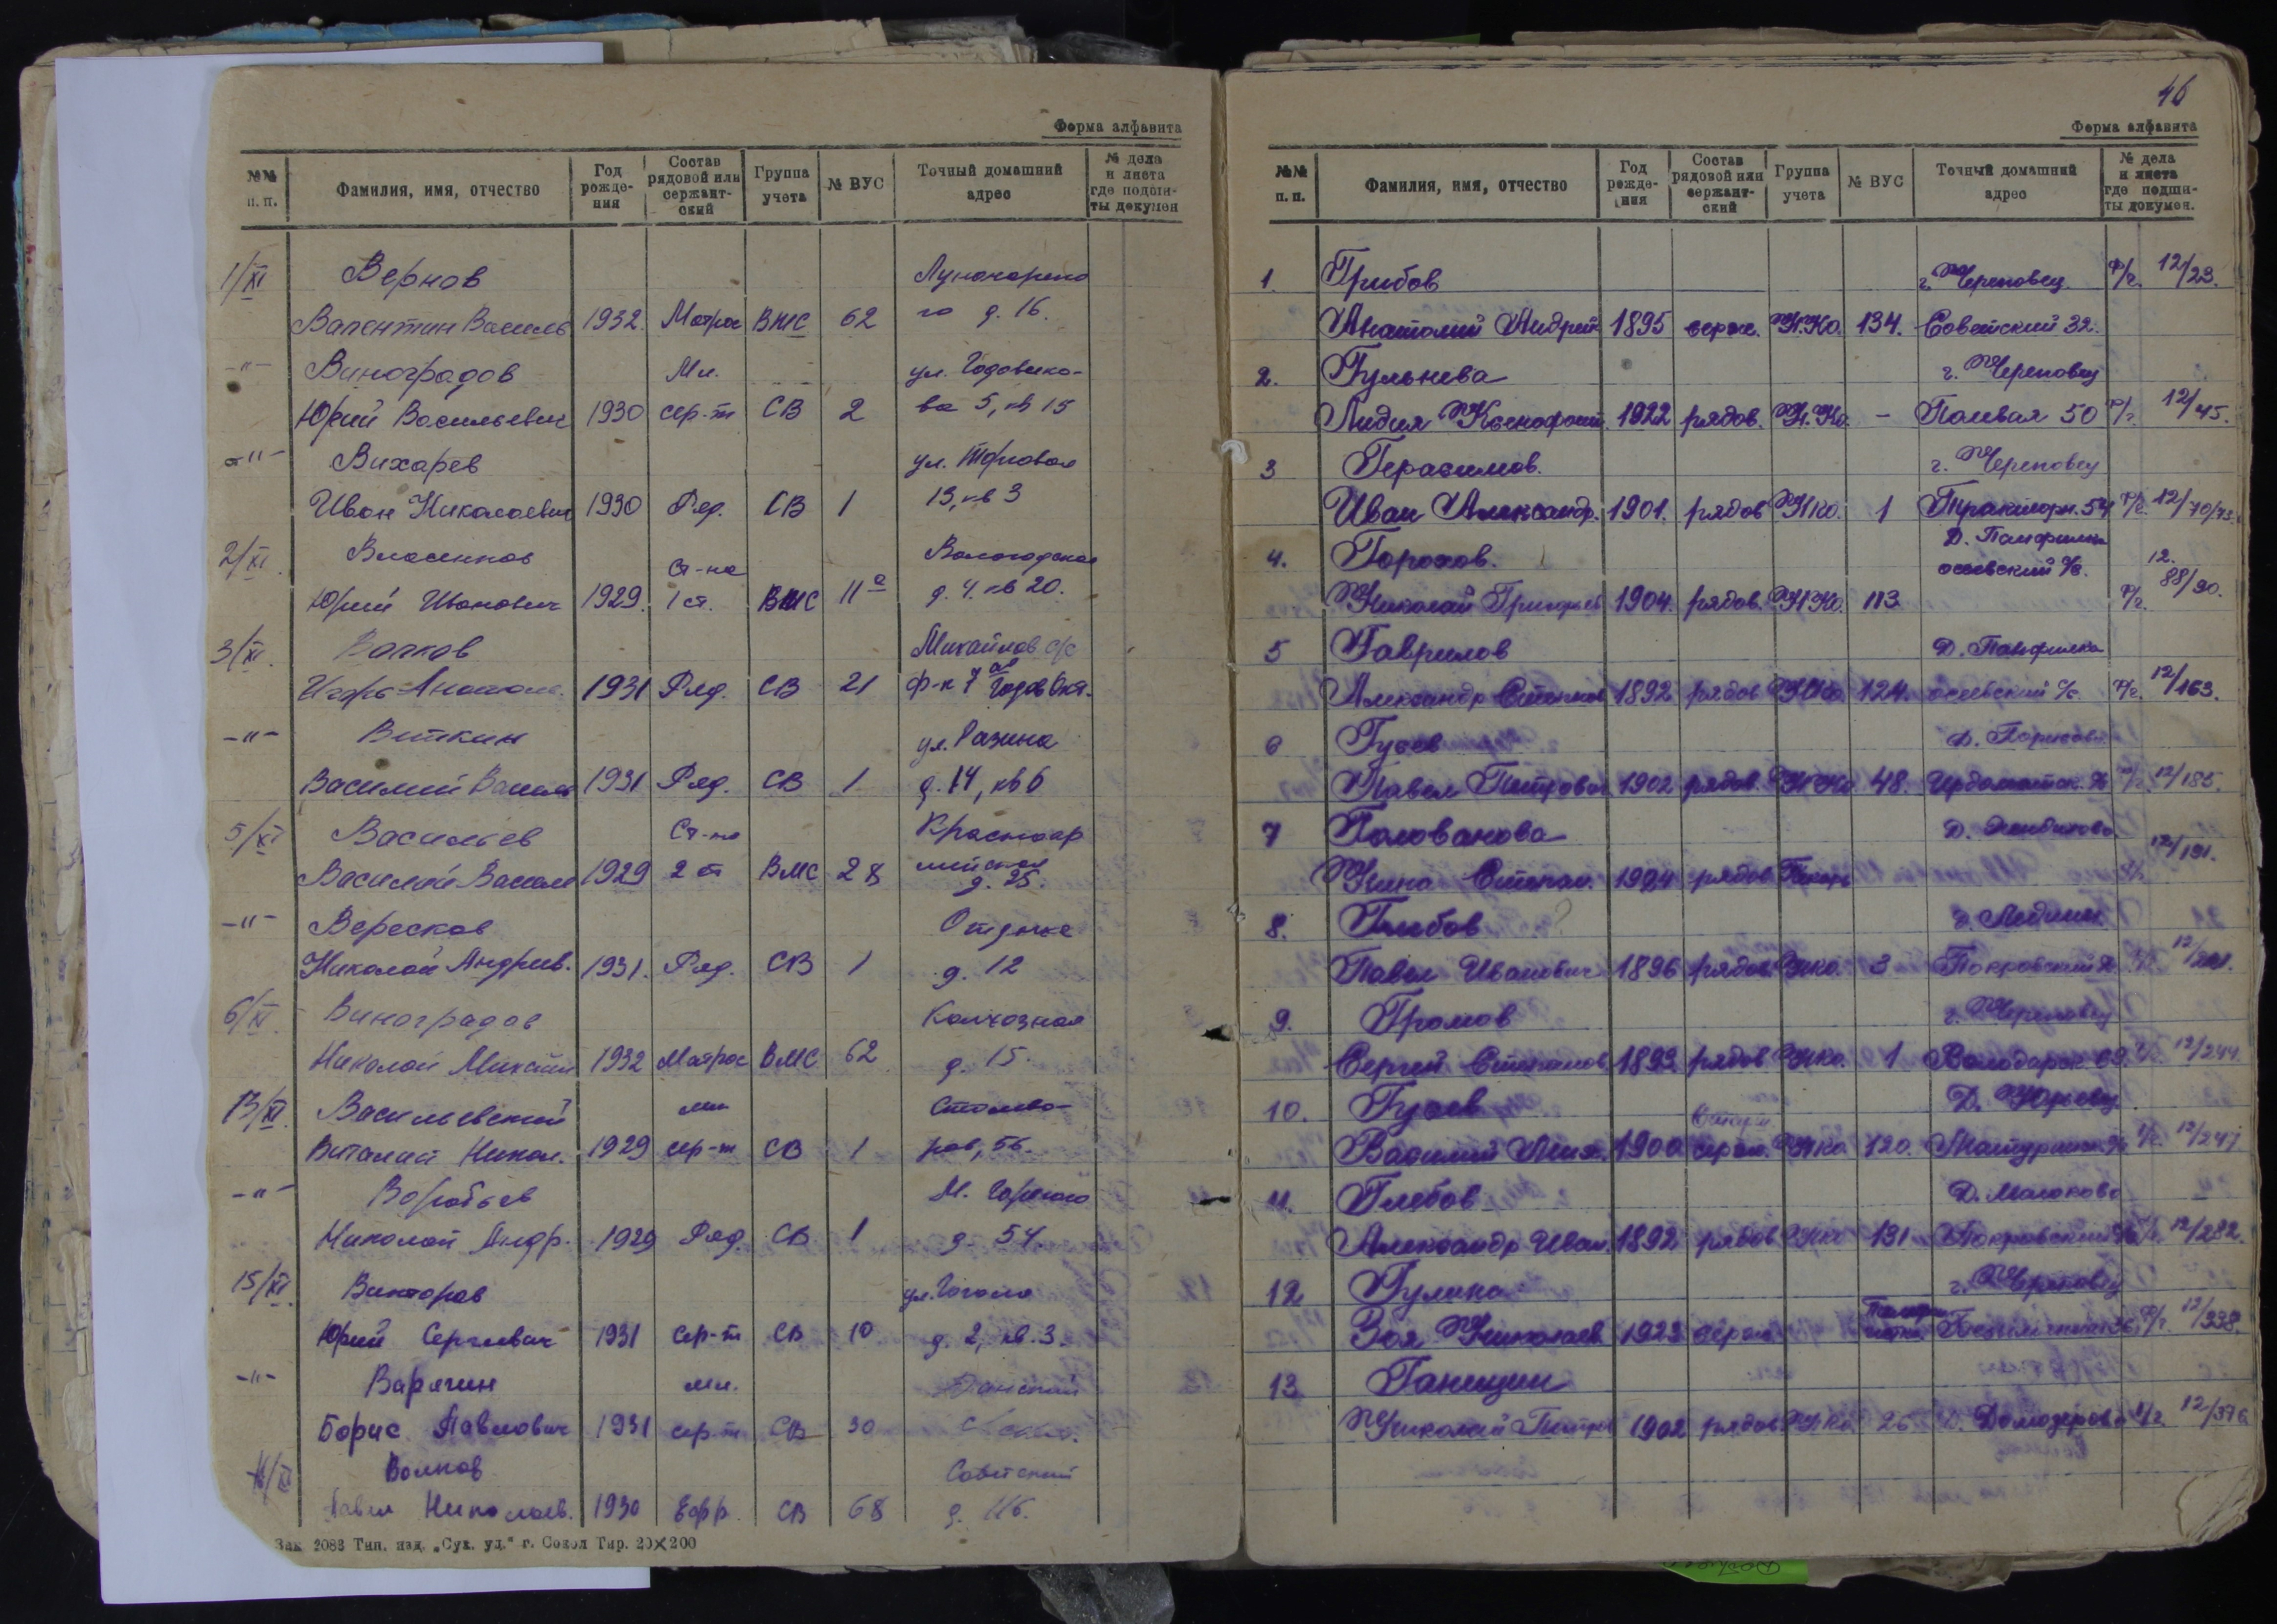 Форма алфавита
№№ п. п. Фамилия, имя, отчество Год рождения Состав рядовой или сержантский Группа учета № ВУС Точный домашний адрес № дела и листа где подшиты докумен
1/XI Вернов Луначарско
Валентин Василь 1932. Матрос ВМС 62 го д. 16.
-"- Виноградов Мл. ул. Годовико-
Юрий Васильевич 1930 сер-т СВ 2 ва 5, кв 15
-"- Вихарев ул.
Иван Николаевич 1930 Ряд. СВ 1 13, кв 3
2/XI. Власенков Ст-на Вологодская
Юрий Иванович 1929. 1 ст. ВМС 11а д. 4. кв 20.
3/XI. Волков Михайлов с/с
Игорь Анатоль. 1931 Ряд. СВ 21 ф-к 7 Годов Окт.
-"- Виткин ул. Разина
Василий Василь 1931 Ряд. СВ 1 д. 14, кв 6
5/XI Васильев Ст-на Красноар
Василий Васил 1929 2 ст ВМС 28 мейская д. 25.
-"- Вересков Отдыха
Николай Андреев. 1931. Ряд. СВ 1 д. 12
6/XI. Виноградов Колхозная
Николай Михайл 1932 Матрос ВМС 62 д. 15.
13/XI. Васильевский мл Сталева-
Виталий Никол. 1929 сер-т СВ 1 ров, 56.
-"- Воробьев М. Горького
Николай Андр. 1929 Ряд. СВ 1 д. 54
15/XI. Викторов ул. Гоголя
Юрий Сергеевич 1931 сер-т СВ 10 д. 2, кв. 3.
-"- Варягин мл.
Борис Павлович 1931 сер-т СВ 30
Волков Советский
Павел Николаев. 1930 Ефр. СВ 68 д. 116.
Зак 2083 Тип. изд. „Сух. уд." г. Сокол Тир. 20×200
46
Форма алфавита
№№ п. п. Фамилия, имя, отчество Год рождения Состав рядовой или сержантский Группа учета № ВУС Точный домашний адрес № дела и листа где подшиты докумен.
1. Грибов г. Череповец 12/23.
Анатолий Андрей 1895 серж. Н.Ко. 134. Советский 32.
2. Гульнева г. Череповец
Лидия Ксенофонт. 1922 рядов. Н.Ко. - Полевая 50 12/45.
3 Герасимов. г. Череповец
Иван Александр. 1901. рядов НКО. 1 54 12/70/73
4. Горохов. Д. Панфилка 12.
осеевский с/с. 88/90.
Николай Григорьев 1904. рядов. НКО. 113
5 Гаврилов Д. Панфилка
Александр Степанов 1892 рядов НКО. 124. осеевский с/с 12/163.
6 Гусев Д.
Павел Петрович 1902 рядов. НКО 48. Ирдоматск. 12/185.
7 Голованова Д.
Нина Степан. 1924 рядов 12/191.
8. Глебов
Павел Иванович 1896 рядов НКО. 3 Покровский
9. Громов г. Череповец
Сергей Степанов 1893 рядов НКО. 1 Володарск 12/244.
10. Гусев Д. Юрьевец
Василий Мих. 1900 серж. НКО 120. 12/247
11. Глебов Д.
Александр Иван. 1892 рядов НКО 131 Покровский 12/282.
12 Гулина г. Череповец
Зоя Николаев 1923 серж 12/338.
13 Ганицин
Николай Петров 1902 рядов НКО 26 Д. Домозерово 12/376